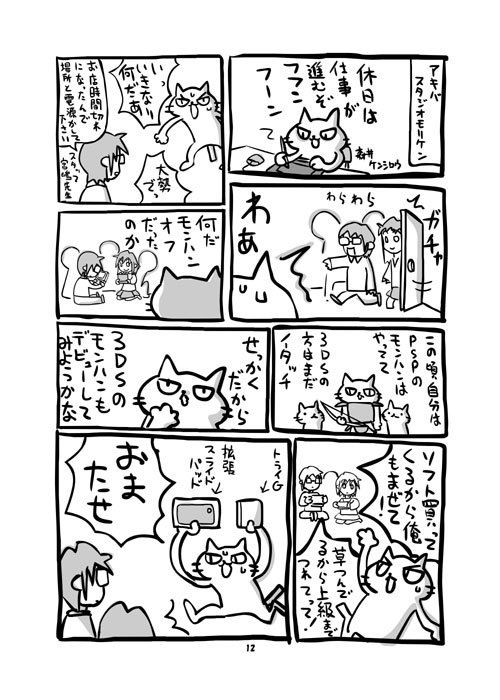 アキバ
スタジオモリケン
休日は
仕事が
進むぞ
フフン
フーン
ケンシロウ
いっ
いきなり
何だあ
大勢
でっ
お店時間切れ
になったんで
場所と電源かして
下さい
スタッフ
宮嶋先生
ガチャ
わらわら
わあ
何だ
モンハン
オフ
だった
のか
この頃自分は
PSPの
モンハンは
やってて
3DSの
方はまだ
ノータッチ
せっかく
だから
3DSの
モンハンも
デビューして
みようかな
ソフト買って
くるから俺
もまぜて
!
草つんで
るから上級まで
つれてって!
トライG
拡張
スライド
パッド
おま
たせ
12